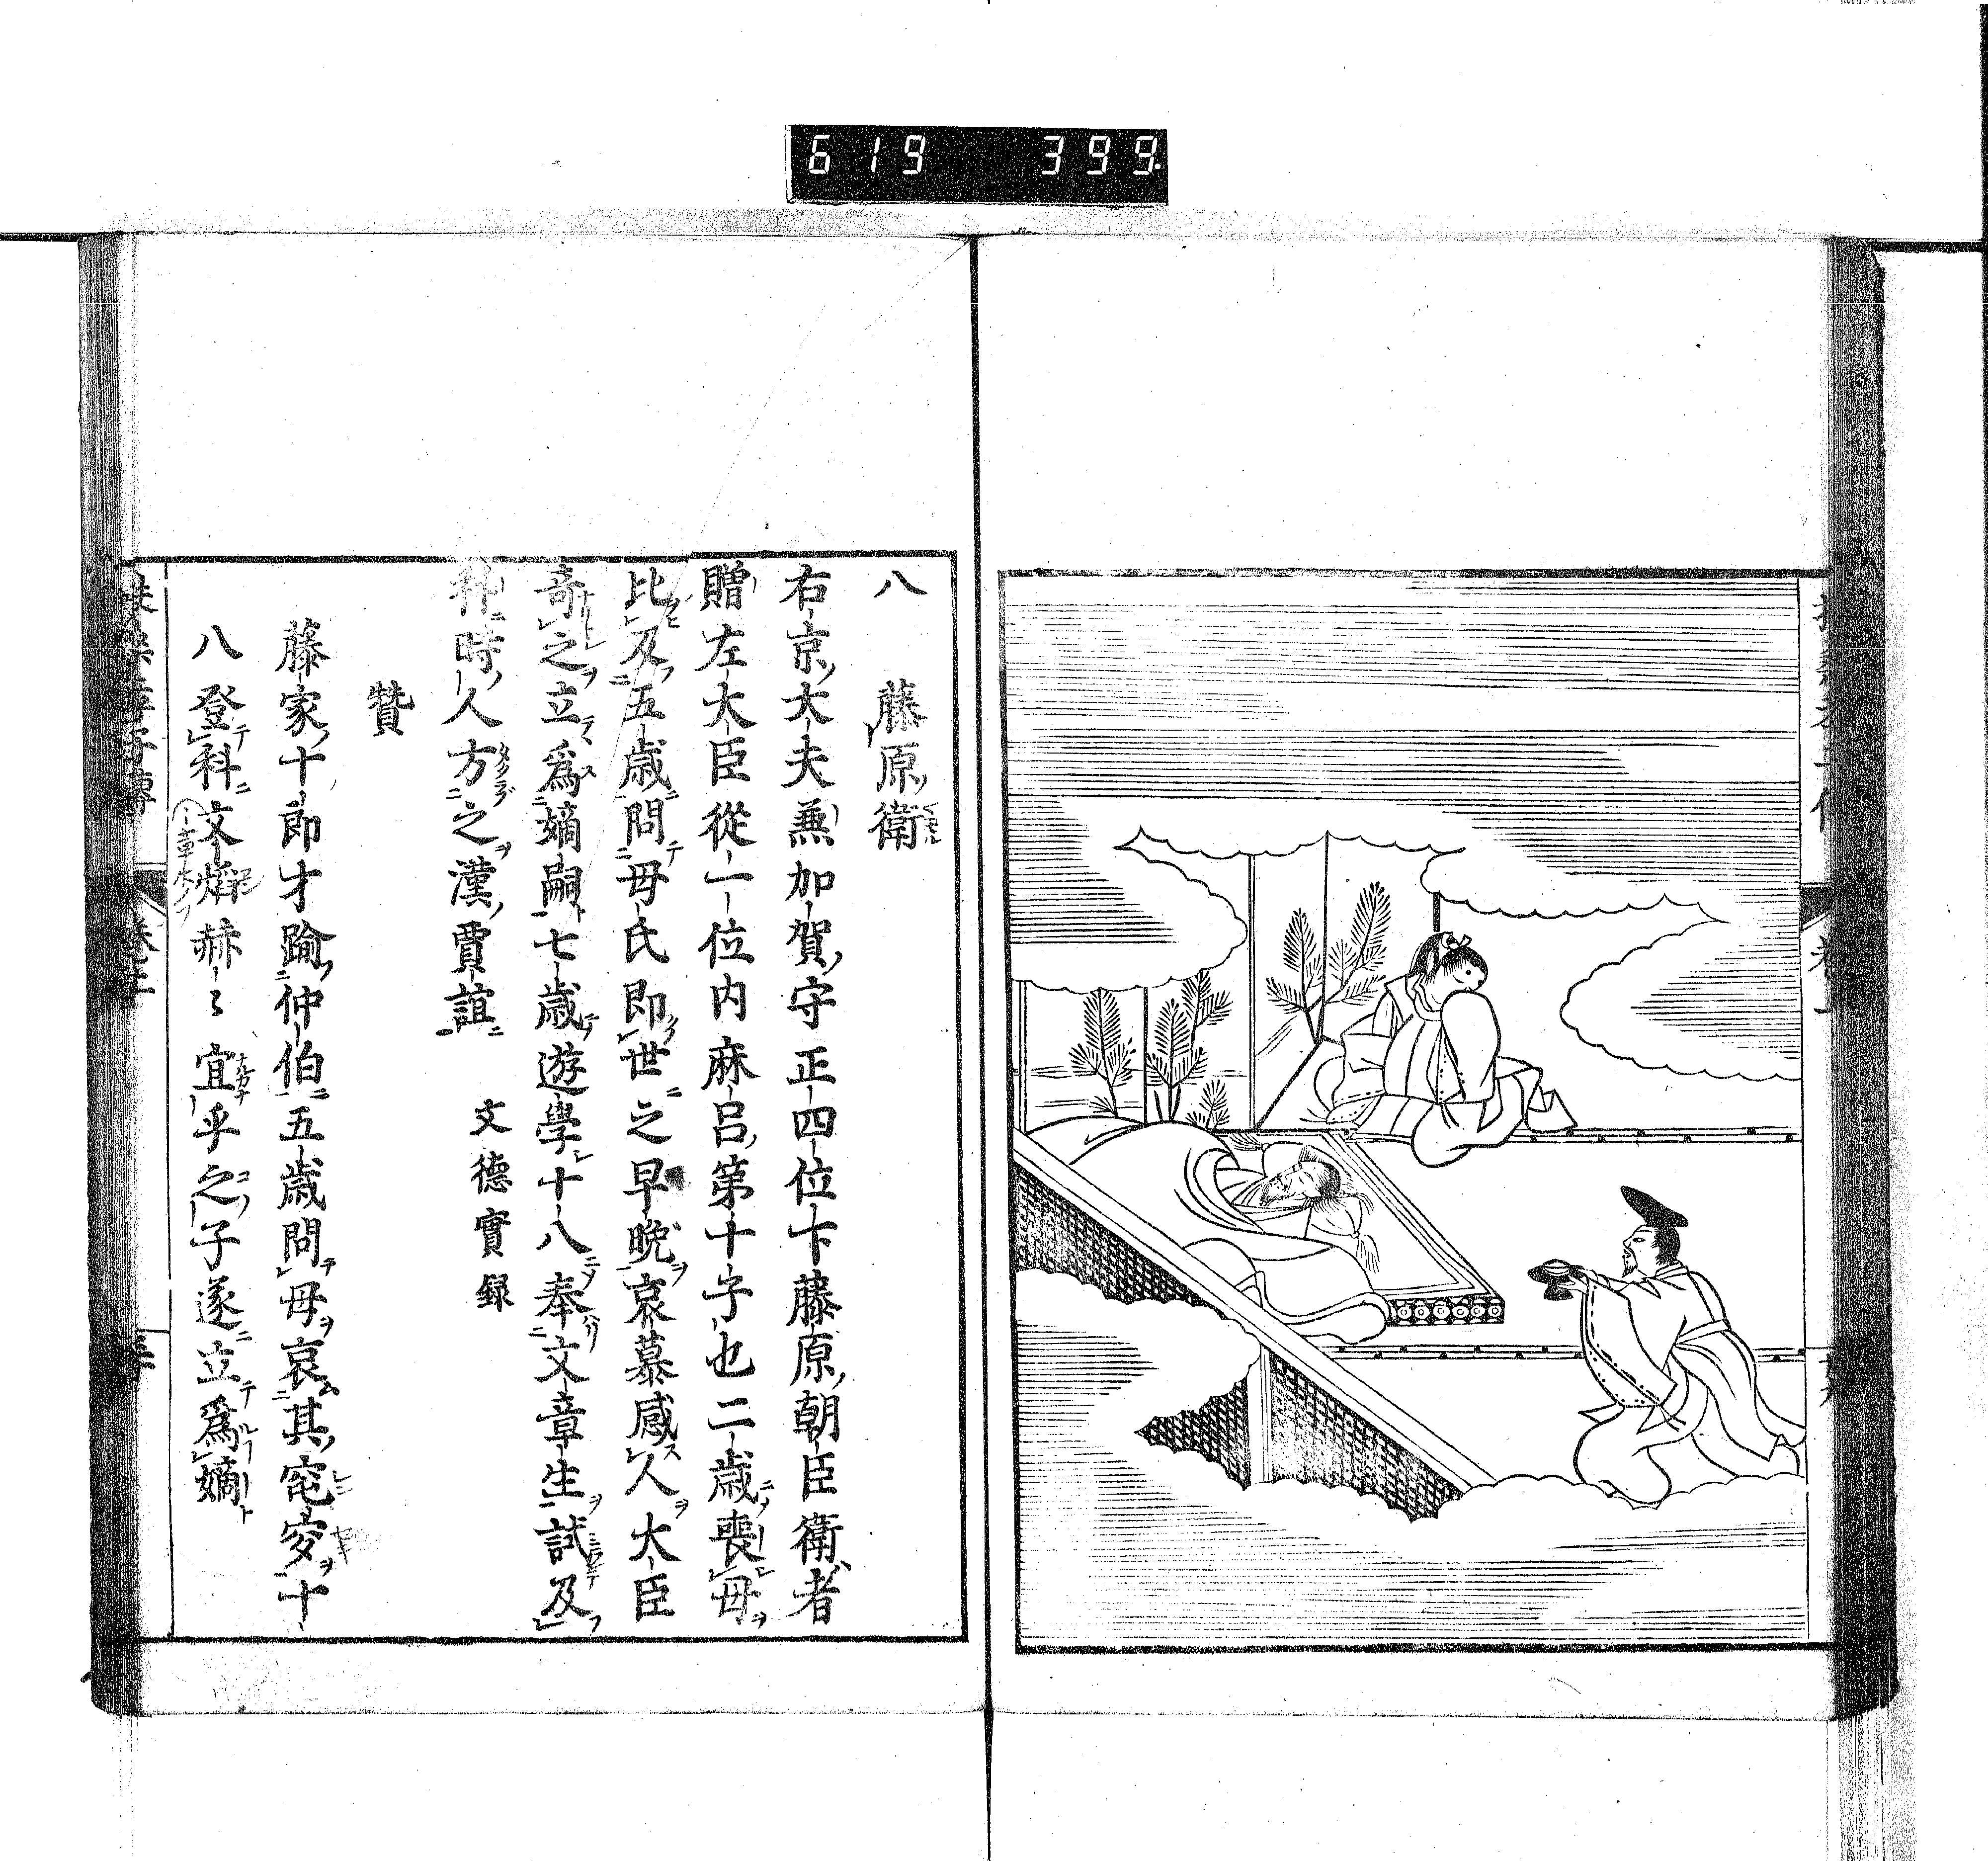 619 399
八 藤原衛
右京大夫兼加賀守正四位下藤原朝臣衛者
贈左大臣從一位内麻呂第十子也二歳喪母
比及五歳問母氏即世之早晩哀慕感人大臣
奇之立爲嫡嗣七歳遊學十八奉文章生試及
科時人方之漢賈誼 文德實録
贊
藤家十郎才踰仲伯五歳問母哀其窀穸十
八登科文燄赫〻宜乎之子遂立爲嫡